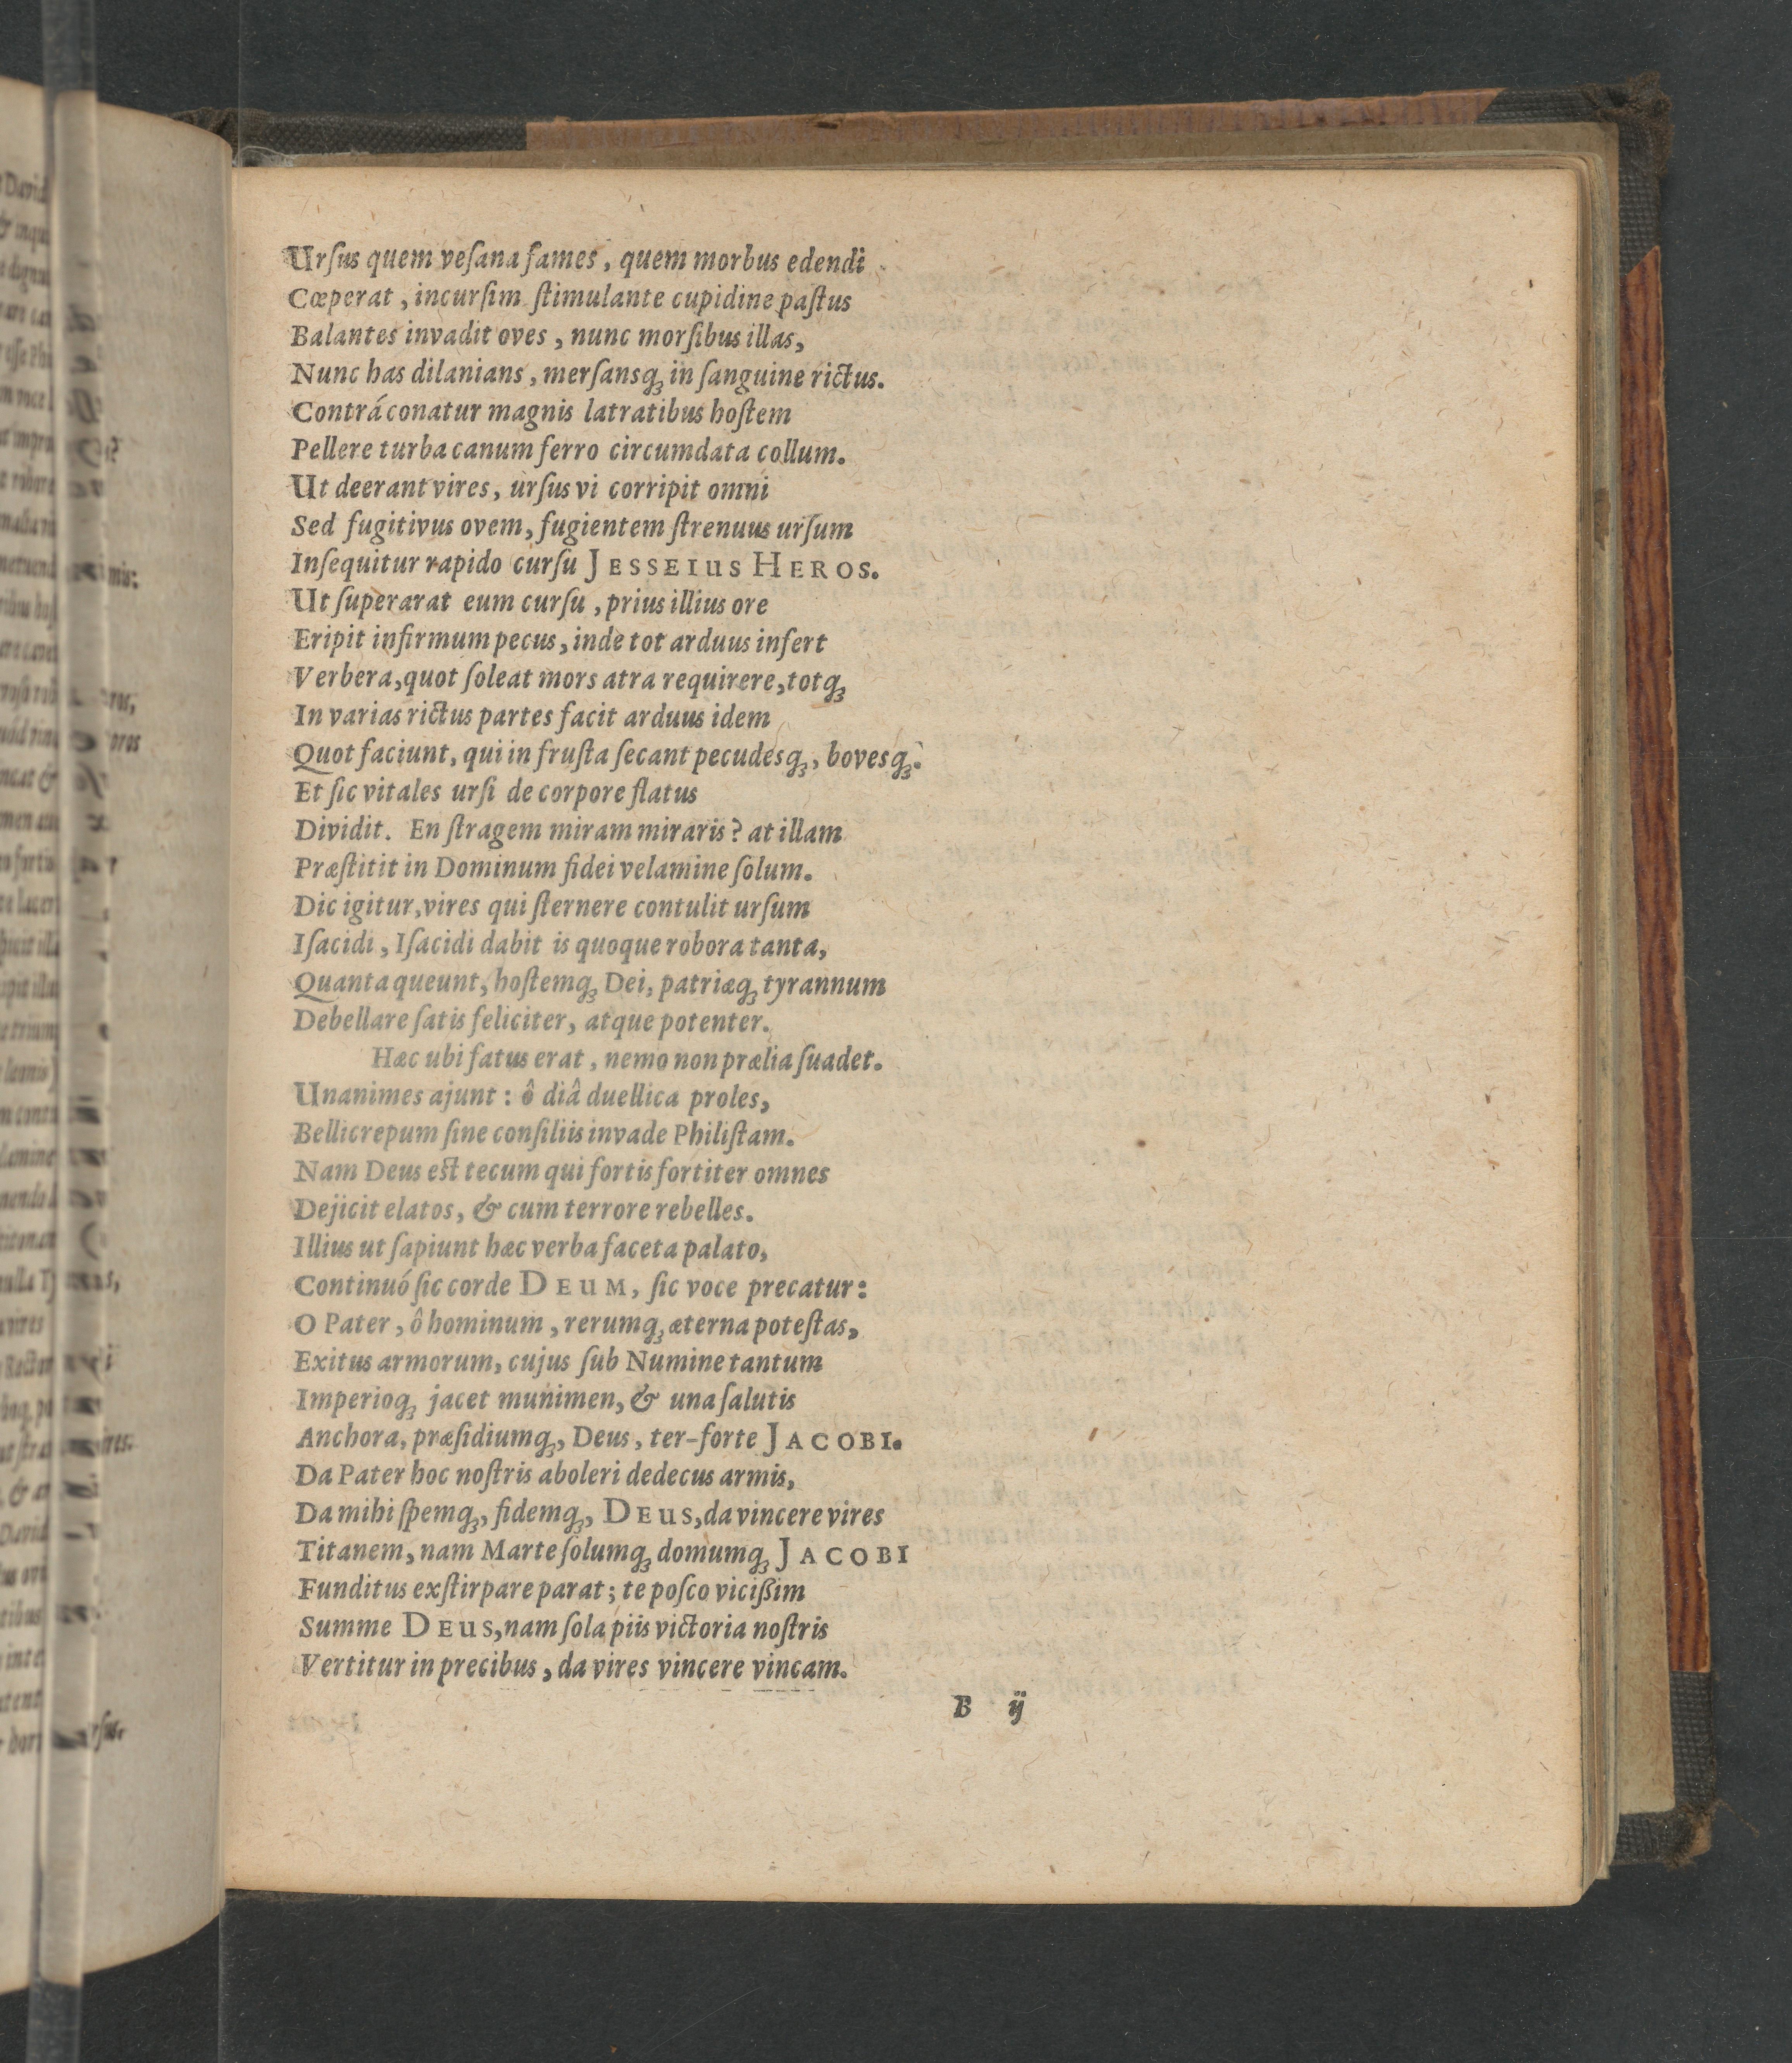 Urſus quem veſana fames, quem morbus edendi
Cœperat, incurſim ſtimulante cupidine paſtus
Balantes invadit oves, nunc morſibus illas,
Nunc has dilanians, merſansq́; in ſanguine rictus.
Contrá conatur magnis latratibus hoſtem
Pellere turba canum ferro circumdata collum.
Ut deerant vires, urſus vi corripit omni
Sed fugitivus ovem, fugientem ſtrenuus urſum
Inſequitur rapido curſu JESSEIUS HEROS.
Ut ſuperarat eum curſu, prius illius ore
Eripit infirmum pecus, inde tot arduus infert
Verbera, quot ſoleat mors atra requirere, totq́;
In varias rictus partes facit arduus idem
Quot faciunt, qui in fruſta ſecant pecudesq́;, bovesq́;.
Et ſic vitales urſi de corpore flatus
Dividit. En ſtragem miram miraris? at illam
Præſtitit in Dominum fidei velamine ſolum.
Dic igitur, vires qui ſternere contulit urſum
Iſacidi, Iſacidi dabit is quoque robora tanta,
Quanta queunt, hoſtemq́; Dei, patriæq́; tyrannum
Debellare ſatis feliciter, atque potenter.
Hæc ubi fatus erat, nemo non prælia ſuadet.
Unanimes ajunt: ô diâ duellica proles,
Bellicrepum ſine conſiliis invade Philiſtam.
Nam Deus eſt tecum qui fortis fortiter omnes
Dejicit elatos, & cum terrore rebelles.
Illius ut ſapiunt hæc verba faceta palato,
Continuó ſic corde DEUM, ſic voce precatur:
O Pater, ô hominum, rerumq́; æterna poteſtas,
Exitus armorum, cujus ſub Numine tantum
Imperioq́; jacet munimen, & una ſalutis
Anchora, præſidiumq́;, Deus, ter-forte JACOBI.
Da Pater hoc noſtris aboleri dedecus armis,
Da mihi ſpemq́;, fidemq́;, DEUS, da vincere vires
Titanem, nam Marte ſolumq́; domumq́; JACOBI
Funditus exſtirpare parat; te poſco viciſſim
Summe DEUS, nam ſola piis victoria noſtris
Vertitur in precibus, da vires vincere vincam.
B ij